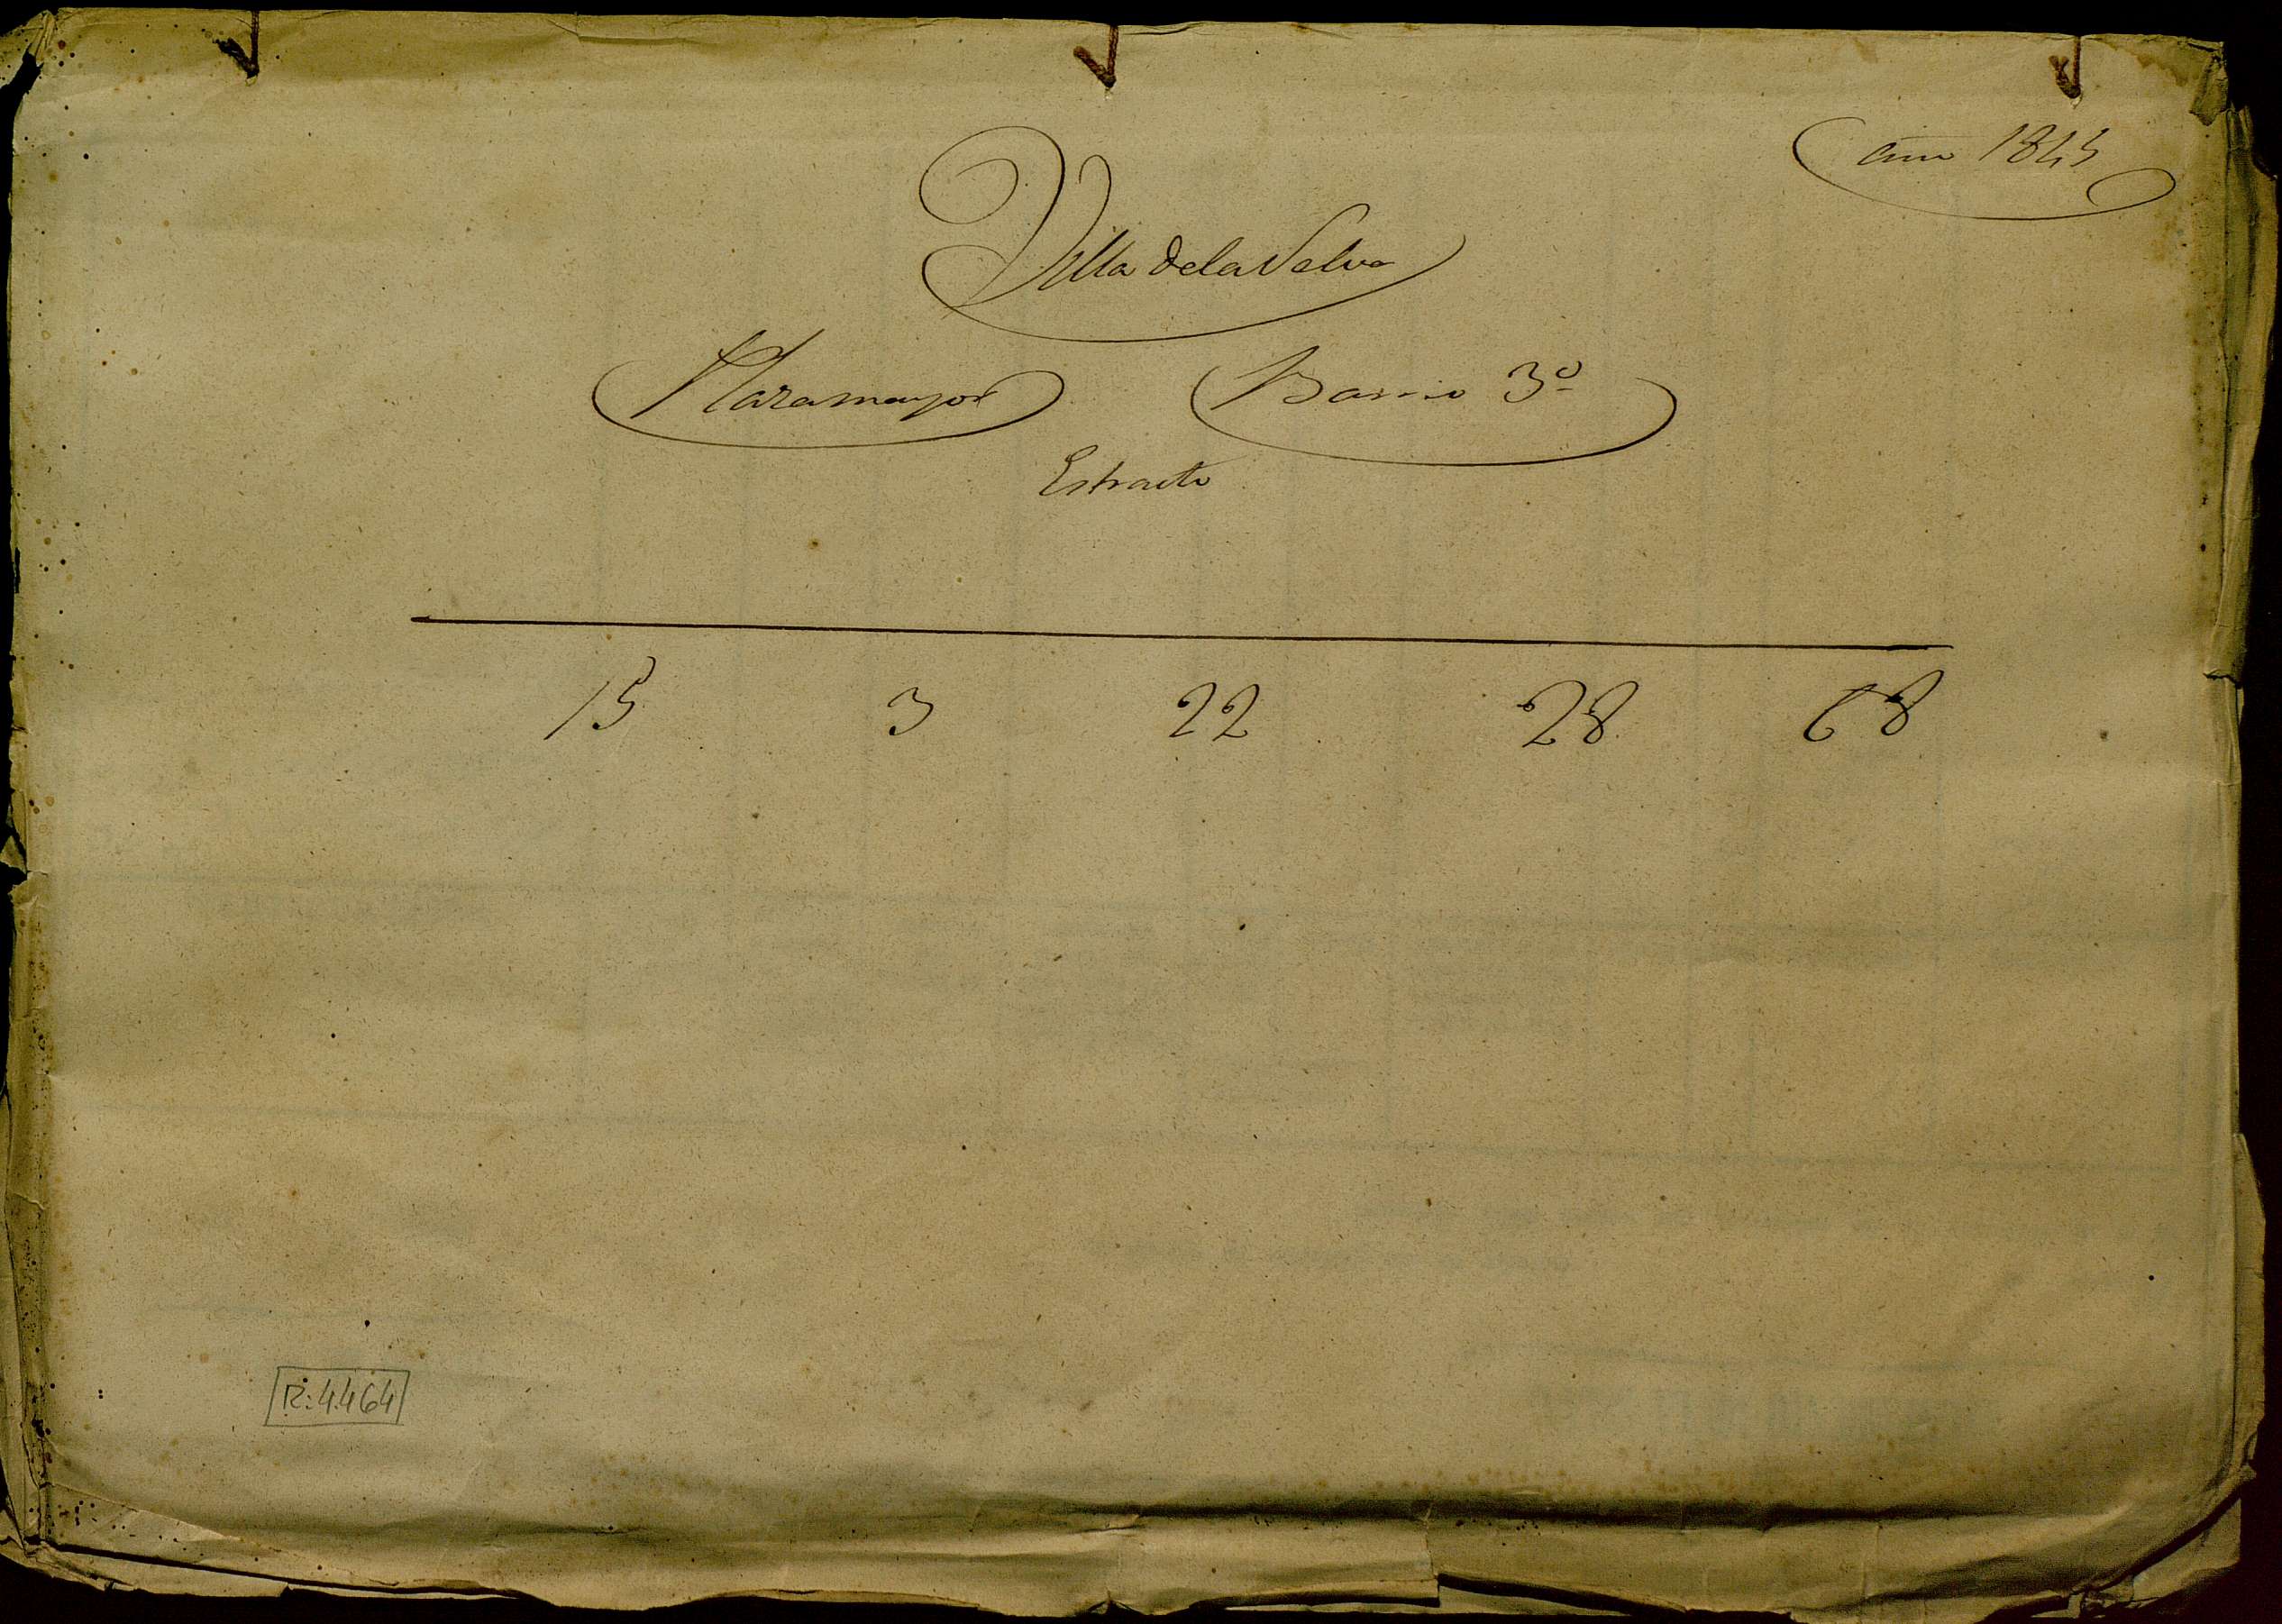 año 1845
Villa dela Selva
Plazamayor Barrio 3º
Estracto
15 3 22 28 68
R:4464